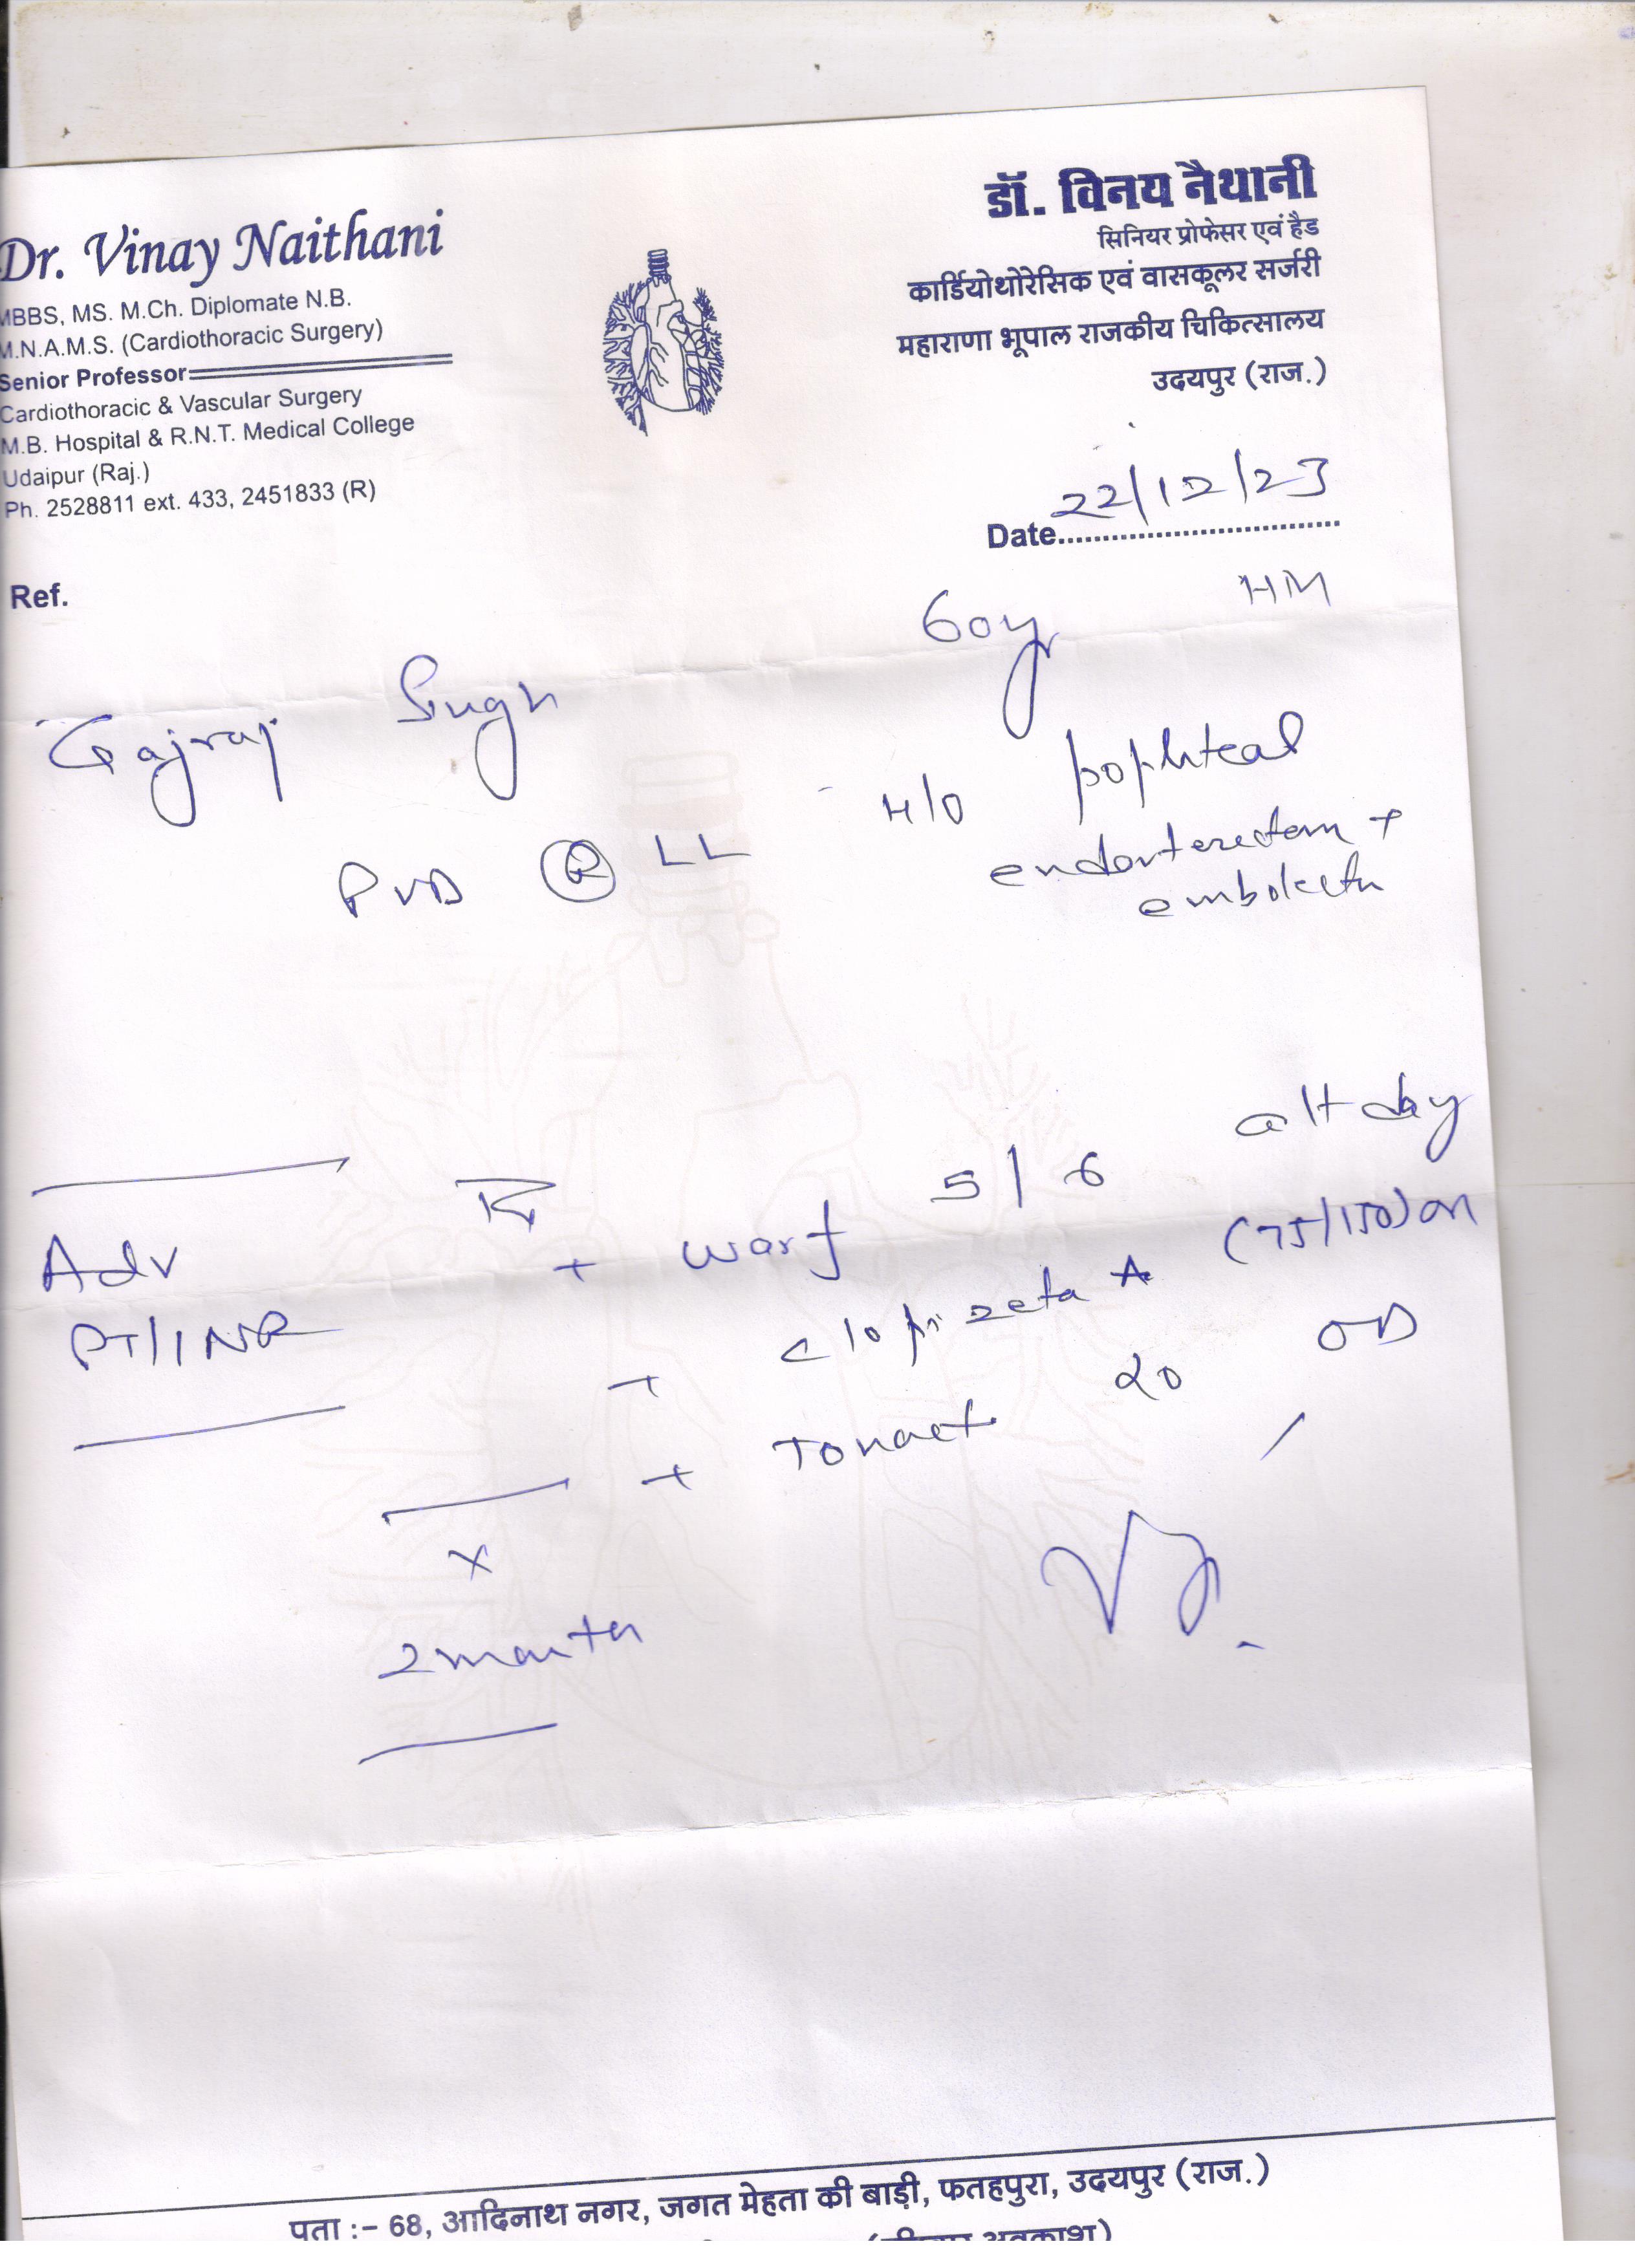 Dr. Vinay Naithani
MBBS, MS. M.Ch. Diplomate N.B.
M.N.A.M.S. (Cardiothoracic Surgery)
Senior Professor
Cardiothoracic & Vascular Surgery
M.B. Hospital & R.N.T. Medical College
Udaipur (Raj.)
Ph. 2528811 ext. 433, 2451833 (R)
डॉ. विनय नैथानी
सिनियर प्रोफेसर एवं हैड
कार्डियोथोरेसिक एवं वासकूलर सर्जरी
महाराणा भूपाल राजकीय चिकित्सालय
उदयपुर (राज.)
Date 22/12/23
Ref.
60yr HM
Gajraj Singh
PVD R LL H/O popliteal
endarterectom +
embolectm
Adv
PT/INR
Rx
+ warf 5/6 alt day
+ clopizeta A (75/150) on
+ Tonact 20 OD
x
2 month
पता :- 68, आदिनाथ नगर, जगत मेहता की बाड़ी, फतहपुरा, उदयपुर (राज.)